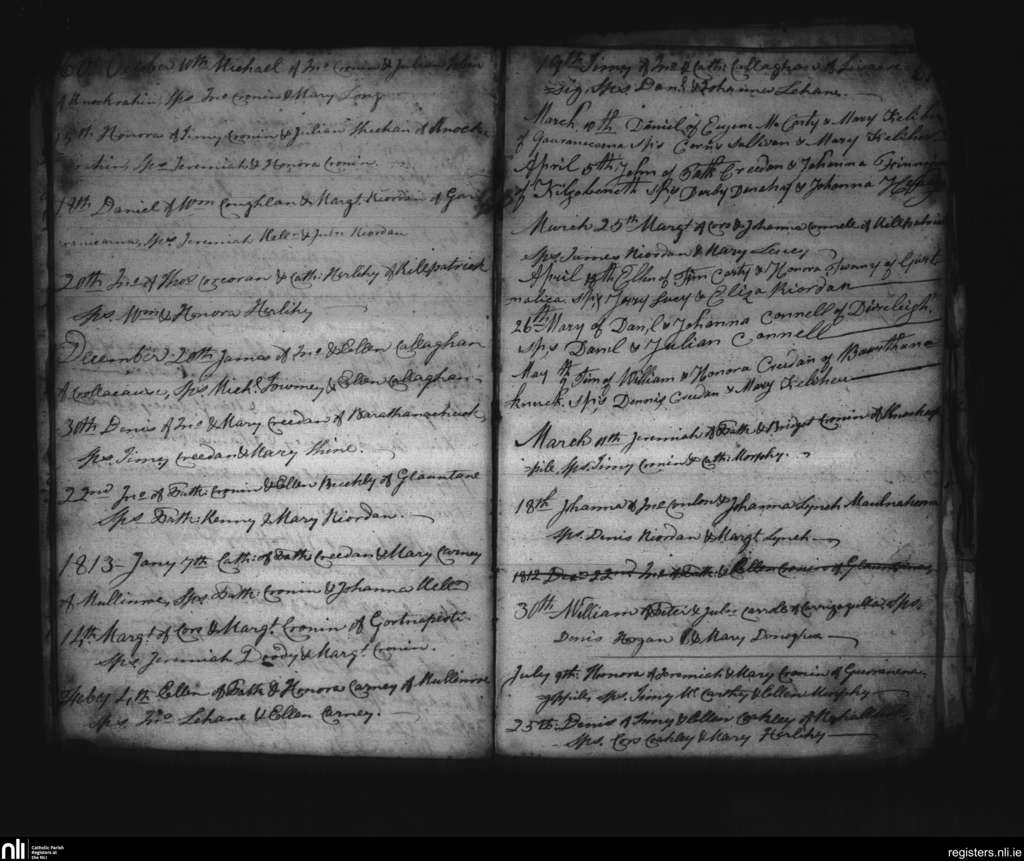 October 10th Michael of Jno Cronin & Julian
of Knockrahin, Sps Jno Cronin & Mary Long
Honora of Timy Cronin & Julian Sheehan of Knocka
Sps Jeremiah & Honora Cronin.
18th Daniel of Wm Coughlan & Margt. Riordan of Gur
ranicarna, Sps. Jeremiah Kellr & Julia Riordan
20th Jno. of Thos Corcoran & Cath: Herlihy of Killpatrick
Sps Wm & Honora Herlihy
December 20th James of Jno. & Ellen Callaghan
of Coolacaure, Sps Mich.l Twomey & Ellen Callaghan.
30th Denis of Jno & Mary Creedan of
Sps Timy Creedan & Mary Shine.
22nd Jno of Path: Cronin & Ellen Buckley of Glauntane
Sps Path: Kenny & Mary Riordan.
1813 - Jany 7th Cath: of Path Creedan & Mary Carney
of Mullinroe, Sps. Path Cronin & Johanna Kellr
14th Margt. of Cors & Margt. Cronin of
Sps. Jeremiah Doody & Margt. Cronin.
Feby 4th Ellen of Path & Honora Carney of Mullinroe
Sps. Jno Lehane & Ellen Carney.
19th Timy of Jno & Cath: Callaghan of
Sps Danl & Johanna Lehane.
March 10th Daniel of Eugene McCarty & Mary Keliher
of Gauranicarna Sps Corns Sullivan & Mary Keliher
April 5th John of Path Creedan & Johanna
of Kilgobeneth Sps, Derby Donehof & Johanna
March 25th Margt of Cors & Johanna Connell of Killpatrick
Sps James Riordan & Mary Lucey
April Ellen of Tim Carty & Honora Twomy of Gort
nalica. Sps Jerry Lucy & Eliza Riordan
26th Mary of Danl & Johanna Connell of Direleigh
Sps Daniel & Julian Connell
May 9th Tim of William & Honora Creedan of Barrthane
knuck. Sps Dennis Creedan & Mary Keleher
March 11th Jeremiah of Path & Bridget Cronin of Knocka
pile, Sps. Timy Cronin & Cath: Morphy.
18th Jhanna of Jno Conlon & Johanna Lynch Maulnahorna
Sps. Denis Riordan & Margt Lynch
1812 Decr 22nd Jno of Path & Ellen Cronin of Glauntane
30th William of Peter & Julia Carrole of Carrigagulla, Sps.
Denis Hogan & Mary Donoghue
July 9th Honora of Jeremiah & Mary Cronin of
Sps. Timy McCarthy & Ellen Morphy
25th Denis of Timy & Ellen Coakley of
Sps. Cors Coakley & Mary Herlihy
nli
Catholic Parish
Registers at
the NLI
registers.nli.ie